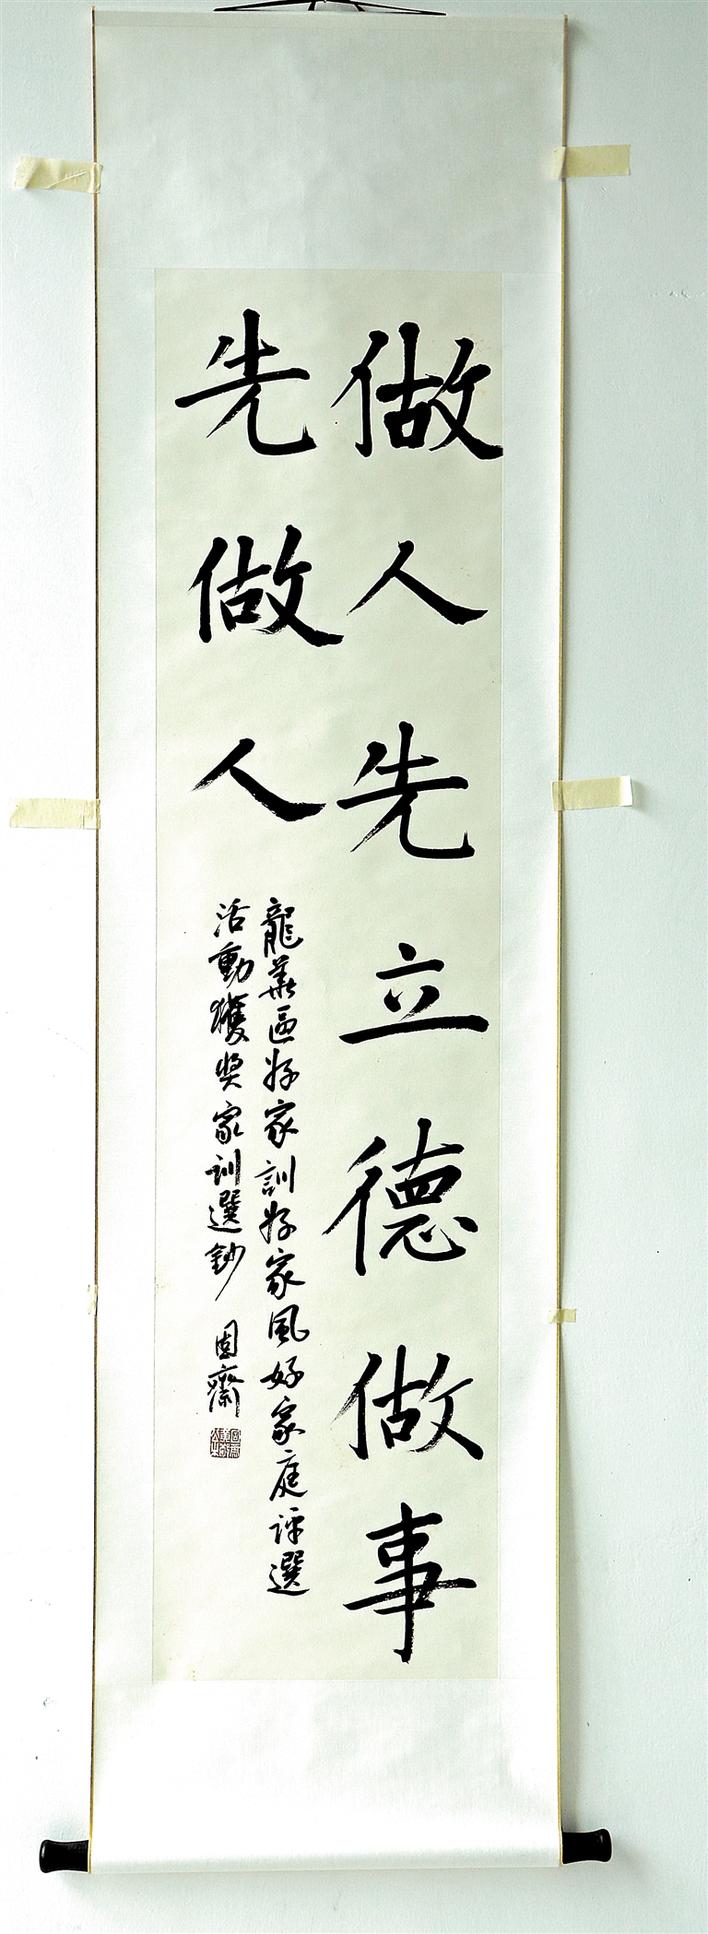 做人先立德做事
先做人
龍華區好家訓好家風好家庭評選
活動獲奖家訓選鈔 固齋